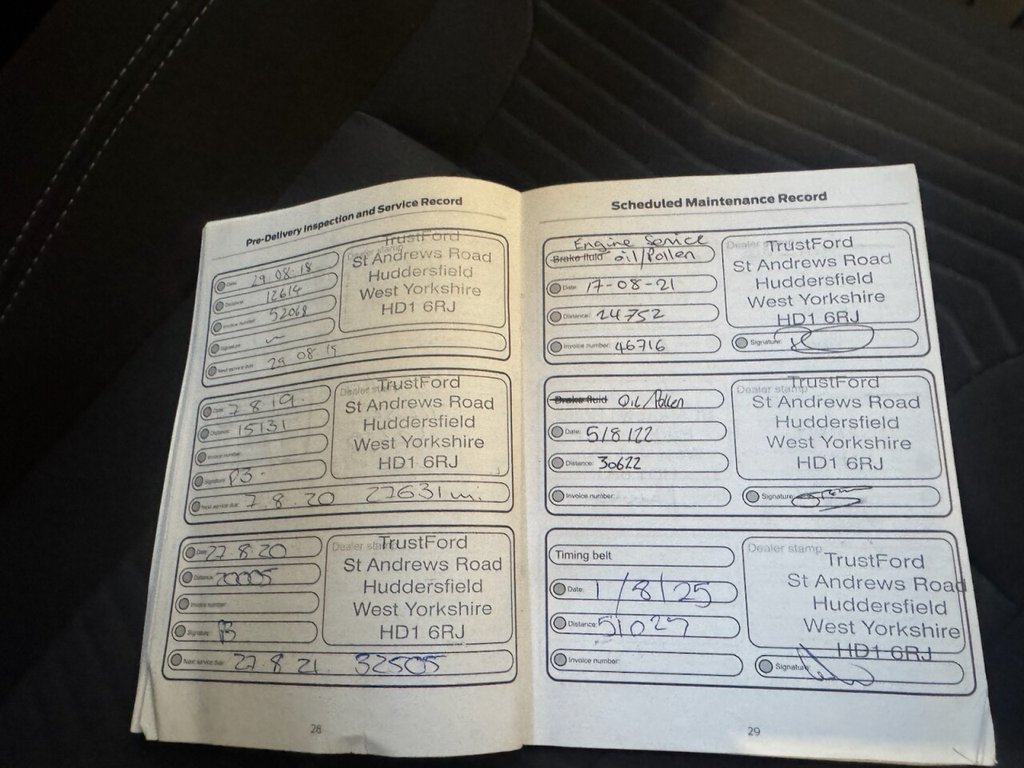 Pre-Delivery Inspection and Service Record
Dealer stamp
TrustFord
St Andrews Road
Huddersfield
West Yorkshire
HD1 6RJ
Date: 29.08.18
Distance: 12614
Invoice number: 52068
Signature:
Next service due: 29.08.19
Dealer stamp
TrustFord
St Andrews Road
Huddersfield
West Yorkshire
HD1 6RJ
Date: 7.8.19.
Distance: 15131
Invoice number:
Signature:
Next service due: 7.8.20 27631 mi.
Dealer stamp
TrustFord
St Andrews Road
Huddersfield
West Yorkshire
HD1 6RJ
Date: 27.8.20
Distance: 20005
Invoice number:
Signature:
Next service due: 27.8.21 32505
28
Scheduled Maintenance Record
Engine Service
Brake fluid oil/Pollen
Date: 17-08-21
Distance: 24752
Invoice number: 46716
Dealer stamp
TrustFord
St Andrews Road
Huddersfield
West Yorkshire
HD1 6RJ
Signature:
Brake fluid Oil/Pollen
Date: 5/8/22
Distance: 30622
Invoice number:
Dealer stamp
TrustFord
St Andrews Road
Huddersfield
West Yorkshire
HD1 6RJ
Signature:
Timing belt
Date: 1/8/25
Distance: 51027
Invoice number:
Dealer stamp
TrustFord
St Andrews Road
Huddersfield
West Yorkshire
HD1 6RJ
Signature:
29